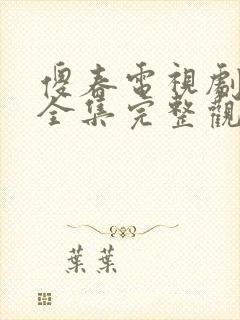 傻春電視劇
全集完整觀
葉葉